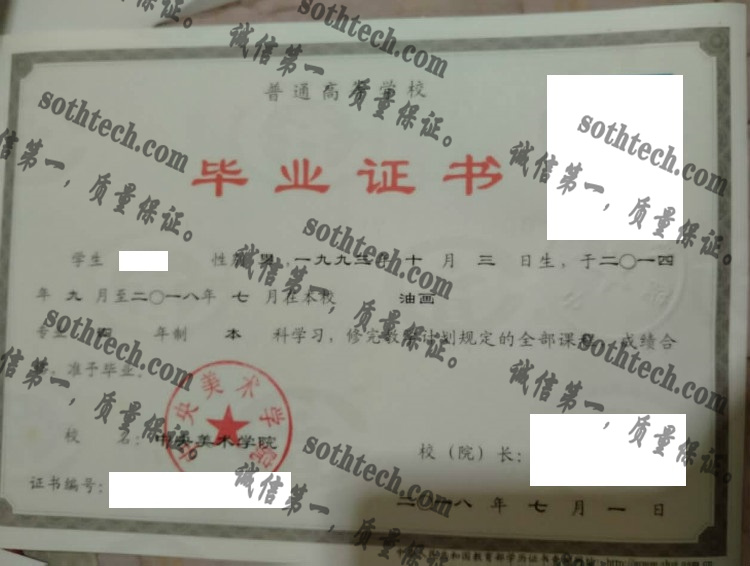 普通高等学校
毕业证书
学生 性别 男，一九九三年 十 月 三 日生，于二〇一四
年 九 月至二〇一八年 七 月在本校 油画
专业 年制 本 科学习，修完教学计划规定的全部课程，成绩合
格，准予毕业。
校 名：中央美术学院
校（院）长：
证书编号：
二〇一八年七月一日
中央美术学院
sothtech.com
诚信第一，质量保证。
sothtech.com
诚信第一，质量保证。
sothtech.com
诚信第一，质量保证。
sothtech.com
诚信第一，质量保证。
sothtech.com
诚信第一，质量保证。
sothtech.com
诚信第一，质量保证。
sothtech.com
诚信第一，质量保证。
sothtech.com
诚信第一，质量保证。